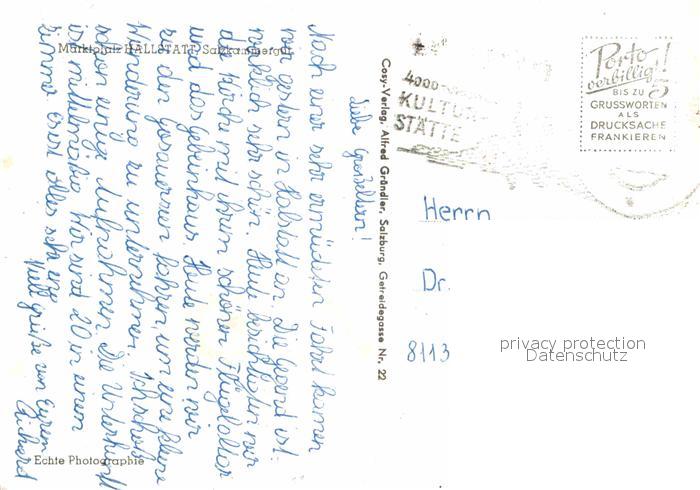 Marktplatz HALLSTATT, Salzkammergut
Liebe Großeltern!
Nach einer sehr ermüdeten Fahrt kamen
wir gestern in Halstatt an. Die Gegend ist
wirklich sehr schön. Heute besichtigten wir
die Kirche mit ihrem schönen Flügelaltar
und das Gebeinhaus. Heute werden wir
zu den Gosauerseen fahren, um eine kleine
Wanderung zu unternehmen. Ich
schon einige Aufnahmen. Die Unterkunft
ist mittelmäßig. Wir sind 20 in einem
Zimmer. Alles sehr
Viele grüße von Eurem
Richard
Echte Photographie
Cosy-Verlag, Alfred Gründler, Salzburg, Getreidegasse Nr. 22
4000
KULTUR
STÄTTE
Porto
verbilligt!
BIS ZU
5
GRUSSWORTEN
ALS
DRUCKSACHE
FRANKIEREN
Herrn
Dr.
8113
privacy protection
Datenschutz